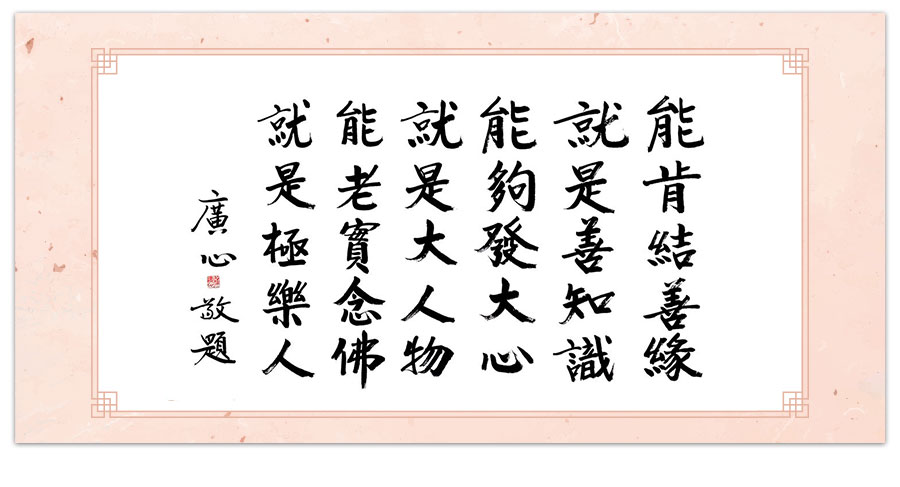 能肯結善緣
就是善知識
能夠發大心
就是大人物
能老實念佛
就是極樂人
廣心敬題